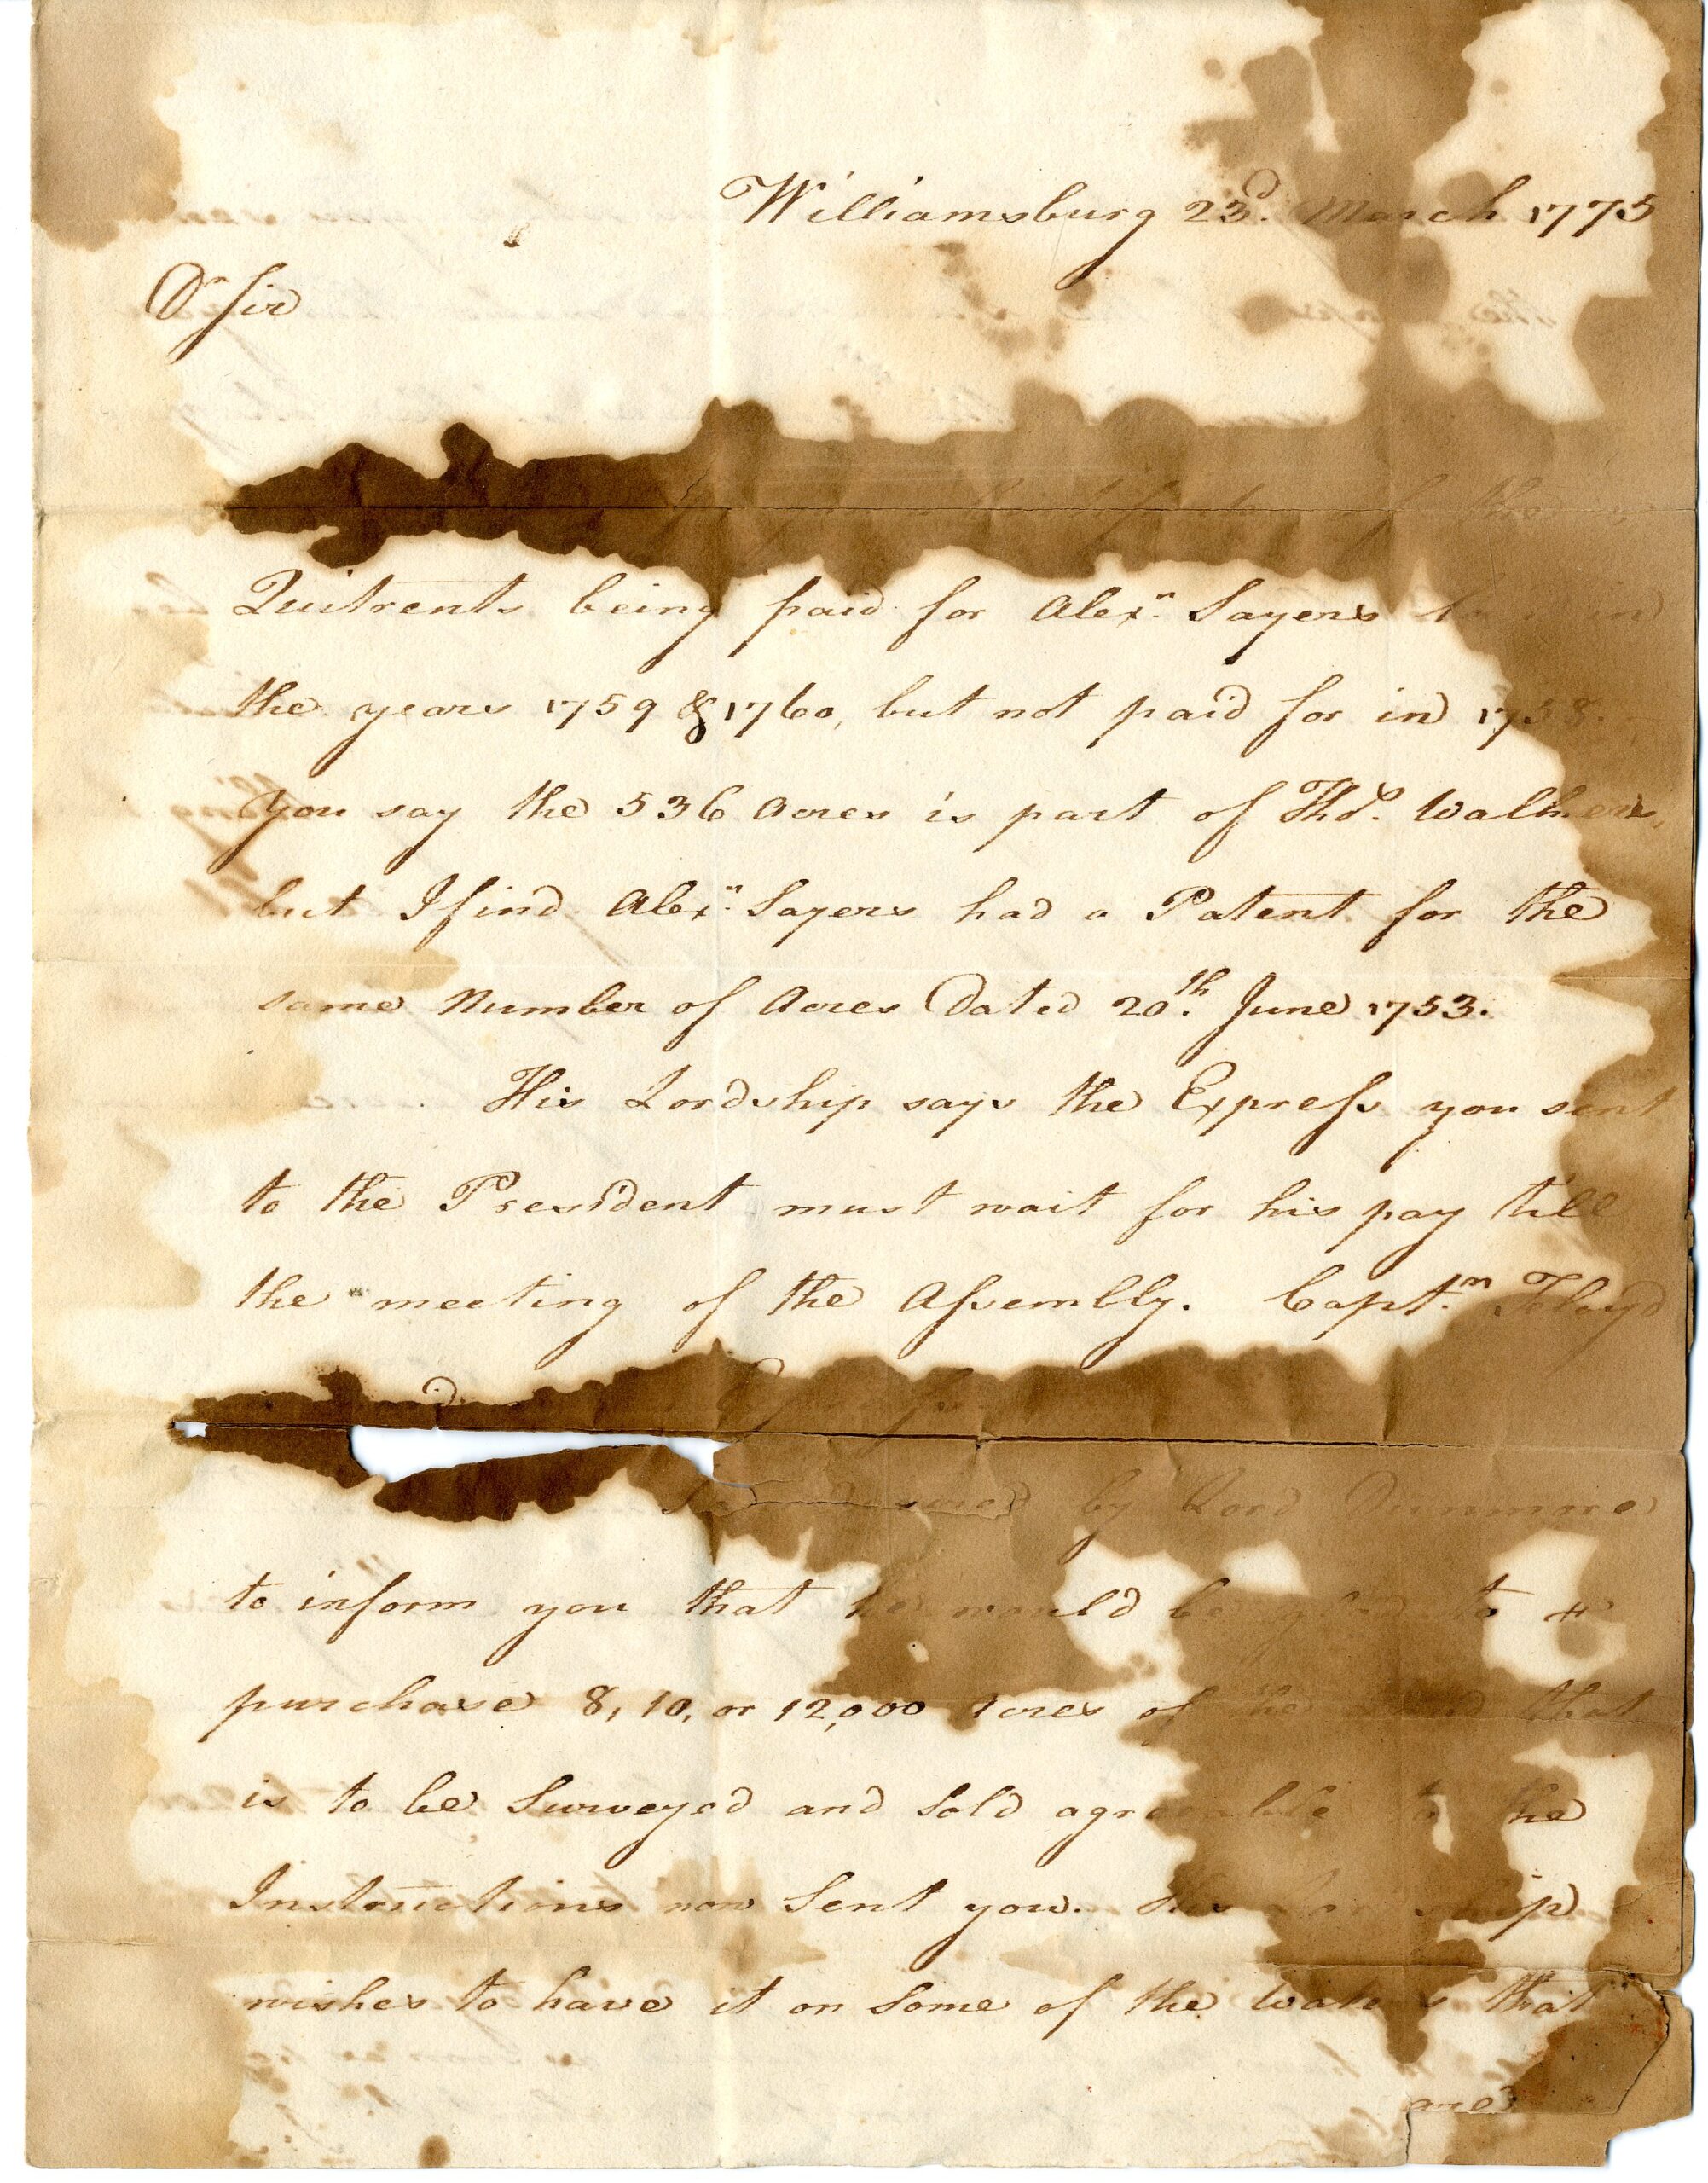 Williamsburg 23d. March 1775
Dr Sir
of the
Quitrents being paid for Alexr. Sayers in
the years 1759 & 1760, but not paid for in 1758.
You say the 536 Acres is part of Thos. Walkers,
but I find Alexr. Sayers had a Patent for the
same Number of Acres Dated 20th. June 1753.
His Lordship says the Express you sent
to the President must wait for his pay till
the meeting of the Assembly. Capt.n Floyd
by Lord Dunmore
to inform you that he would be glad to
purchase 8, 10, or 12,000 Acres of the Land that
is to be Surveyed and Sold agreeable to the
Instructions now Sent you. His Lordship
wishes to have it on Some of the Waters that
are